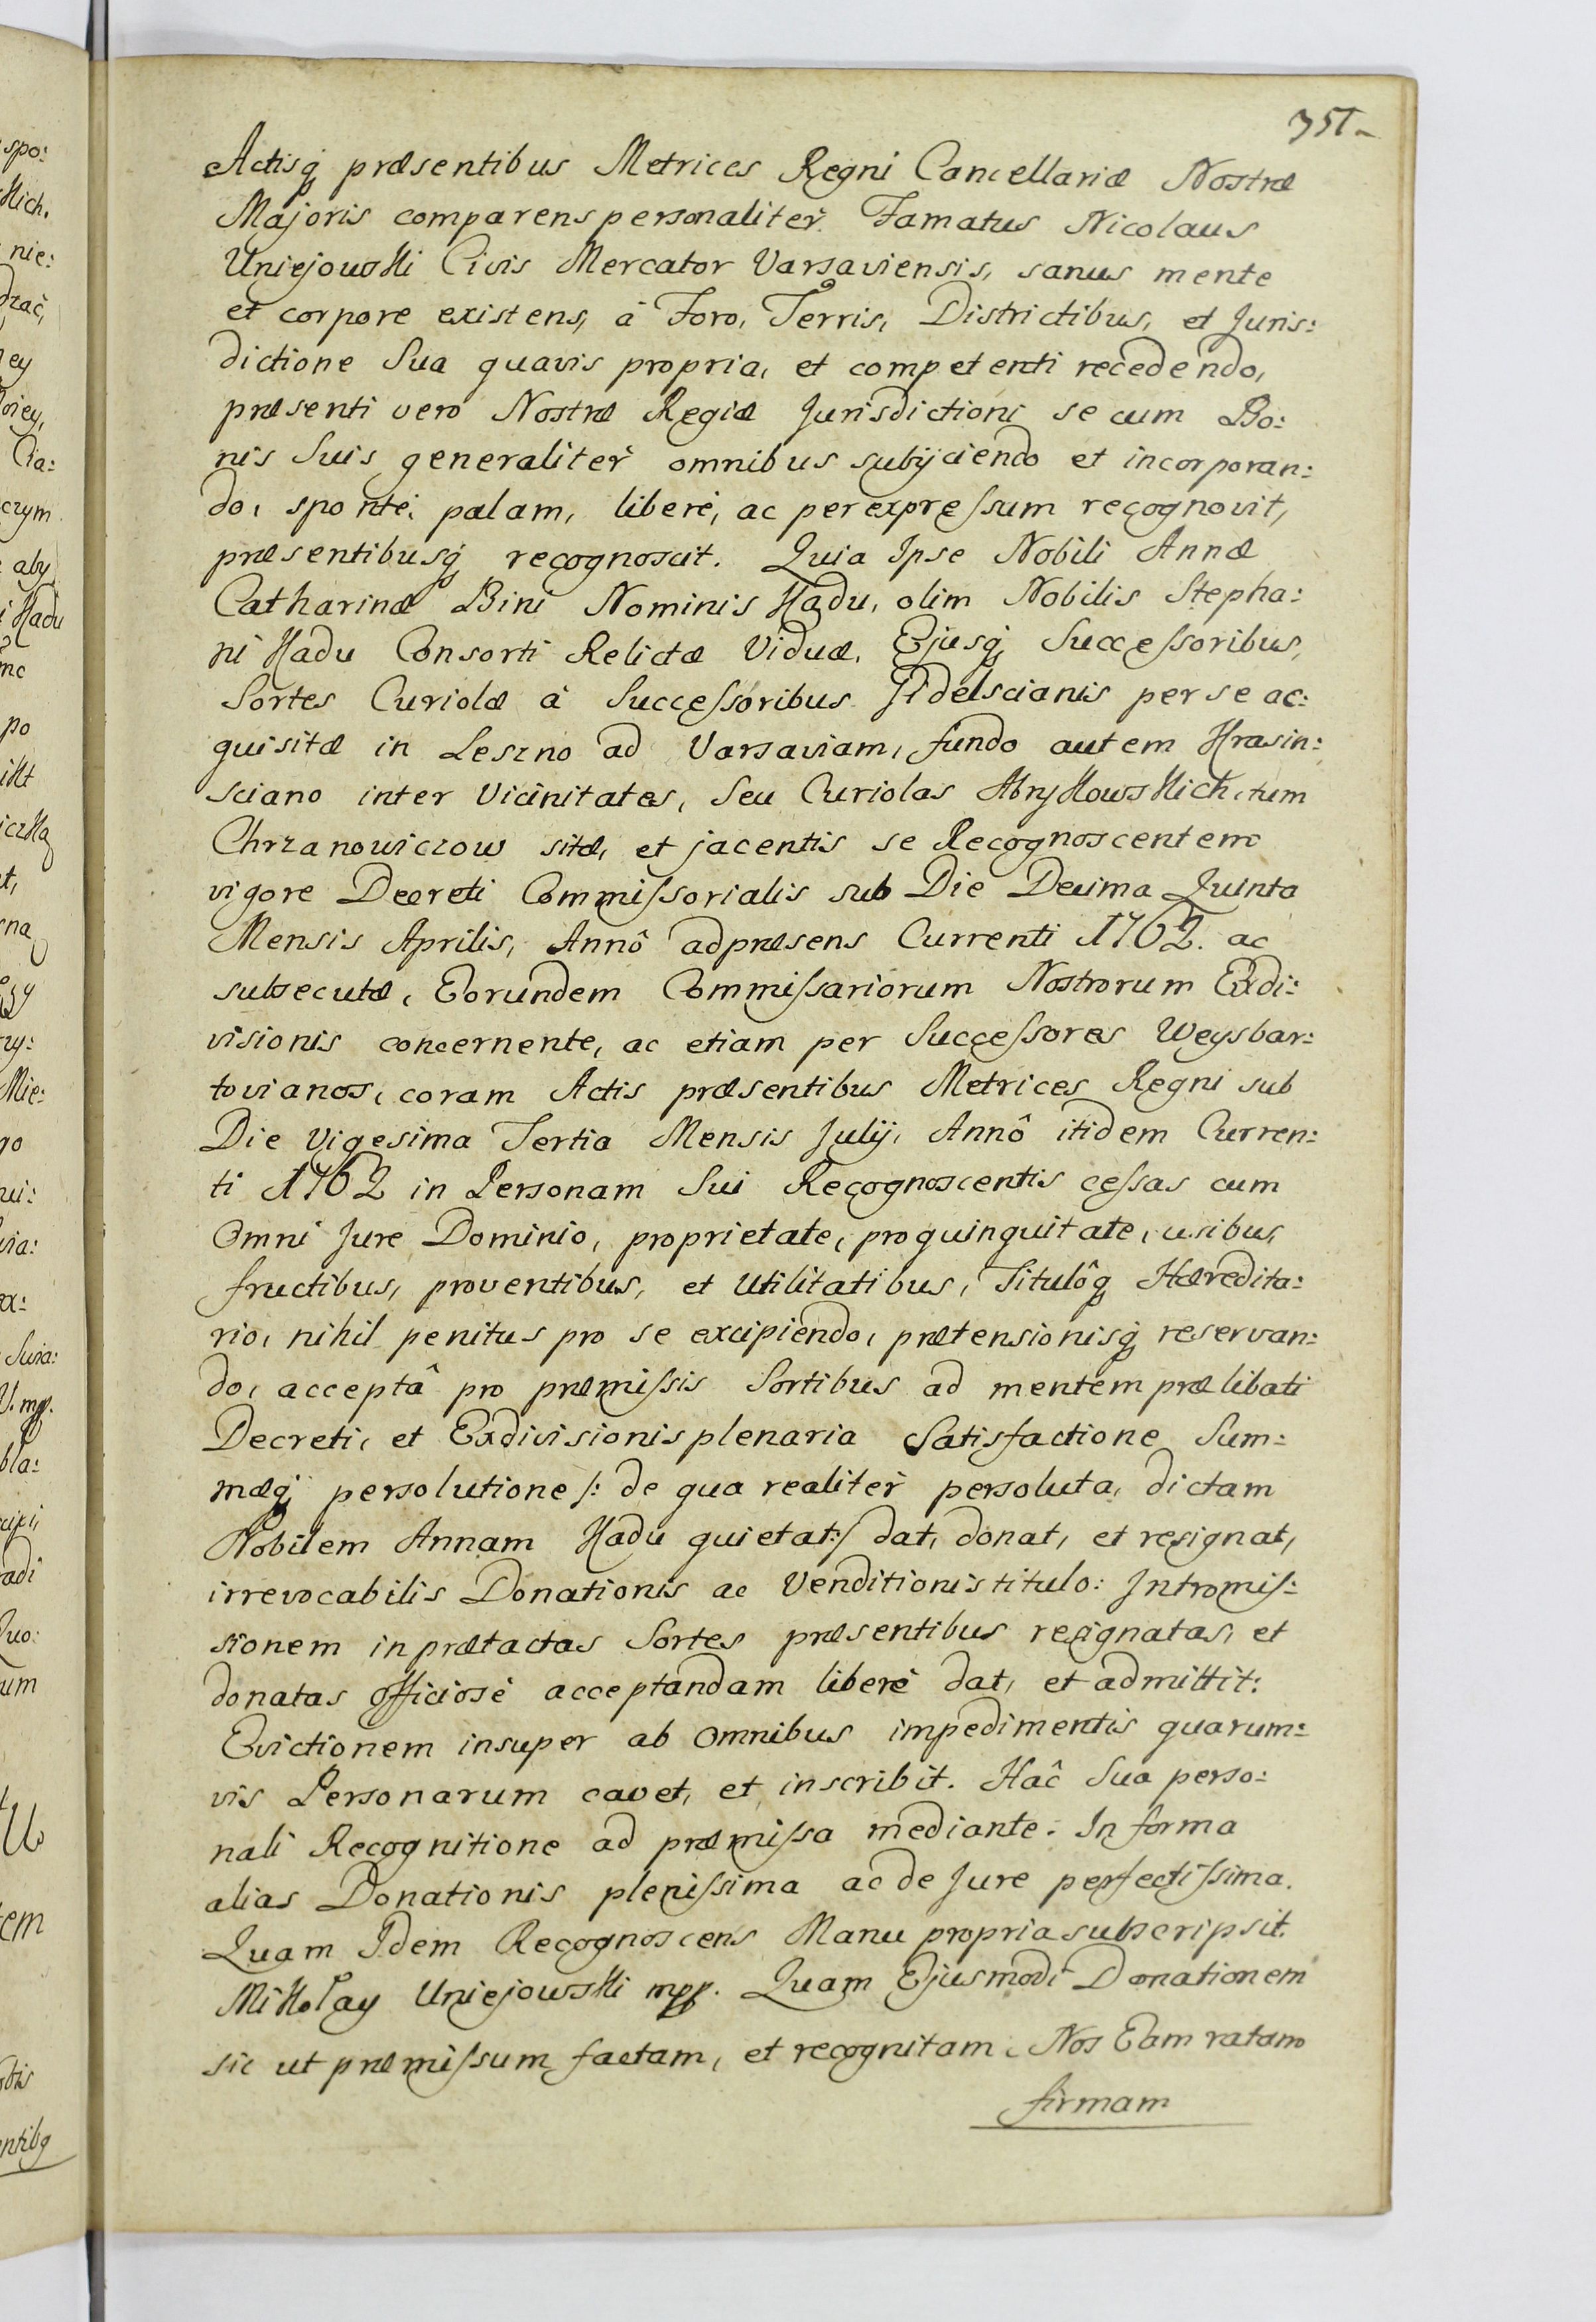 351
Actisq̃ præsentibus Metrices Regni Cancellariæ Nostræ
Majoris comparens personaliter Famatus Nicolaus
Uniejowski Civis Mercator Varsaviensis, sanus mente
et corpore existens, à Foro, Terris, Districtibus, et Juris:
dictione Sua quavis propria, et competenti recedendo,
præsenti vero Nostræ Regiæ Jurisdictioni se cum Bo:
nis Suis generaliter omnibus subijciendo et incorporan:
do, sponte, palam, liberè, ac per expreſsum recognovit,
præsentibusq̃ recognoscit. Quia Ipse Nobili Annæ
Catharinæ Bini Nominis Kadu, olim Nobilis Stepha:
ni Kadu Consorti Relictæ Viduæ, Ejusq̃ Succeſsoribus,
Sortes Curiolæ à Succeſsoribus per se ac:
quisitæ in Leszno ad Varsaviam, fundo autem Krasin:
sciano inter Vicinitates, Seu Curiolas tum
Chrzanowiczow sitæ, et jacentis se Recognoscentem
vigore Decreti Commiſsorialis sub Die Decima Quinta
Mensis Aprilis, Annô ad præsens Currenti 1762. ac
subsecutæ, Eorundem Commiſsariorum Nostrorum Exdi:
visionis concernente, ac etiam per Succeſsores Weysbar:
tovianos, coram Actis præsentibus Metrices Regni sub
Die Vigesima Tertia Mensis Julij, Annô itidem Curren:
ti 1762 in Personam Sui Recognoscentis ceſsas cum
Omni Jure Dominio, proprietate, proquinquitate, usibus,
fructibus, proventibus, et Utilitatibus, Titulôq̃ Hæredita:
rio, nihil penitus pro se excipiendo, prætensionisq̃ reservan:
do, acceptâ pro præmiſsis Sortibus ad mentem prælibati
Decreti, et Exdivisionis plenaria Satisfactione Sum:
mæq̃ persolutione /: de qua realiter persoluta, dictam
Nobilem Annam Kadu quietat :/ dat, donat, et resignat,
irrevocabilis Donationis ac Venditionis titulo: Intromiſ:
sionem in prætactas Sortes præsentibus resignatas, et
donatas officiosè acceptandam liberè dat, et admittit:
Evictionem insuper ab Omnibus impedimentis quarum:
vis Personarum cavet, et inscribit. Hâc Sua perso:
nali Recognitione ad præmiſsa mediante. In forma
alias Donationis pleniſsima ac de Jure perfectiſsima.
Quam Idem Recognoscens Manu propria subscripsit.
Mikołay Uniejowski mpp. Quam Ejusmodi Donationem
sic ut præmiſsum factam, et recognitam, Nos Eam ratam
firmam